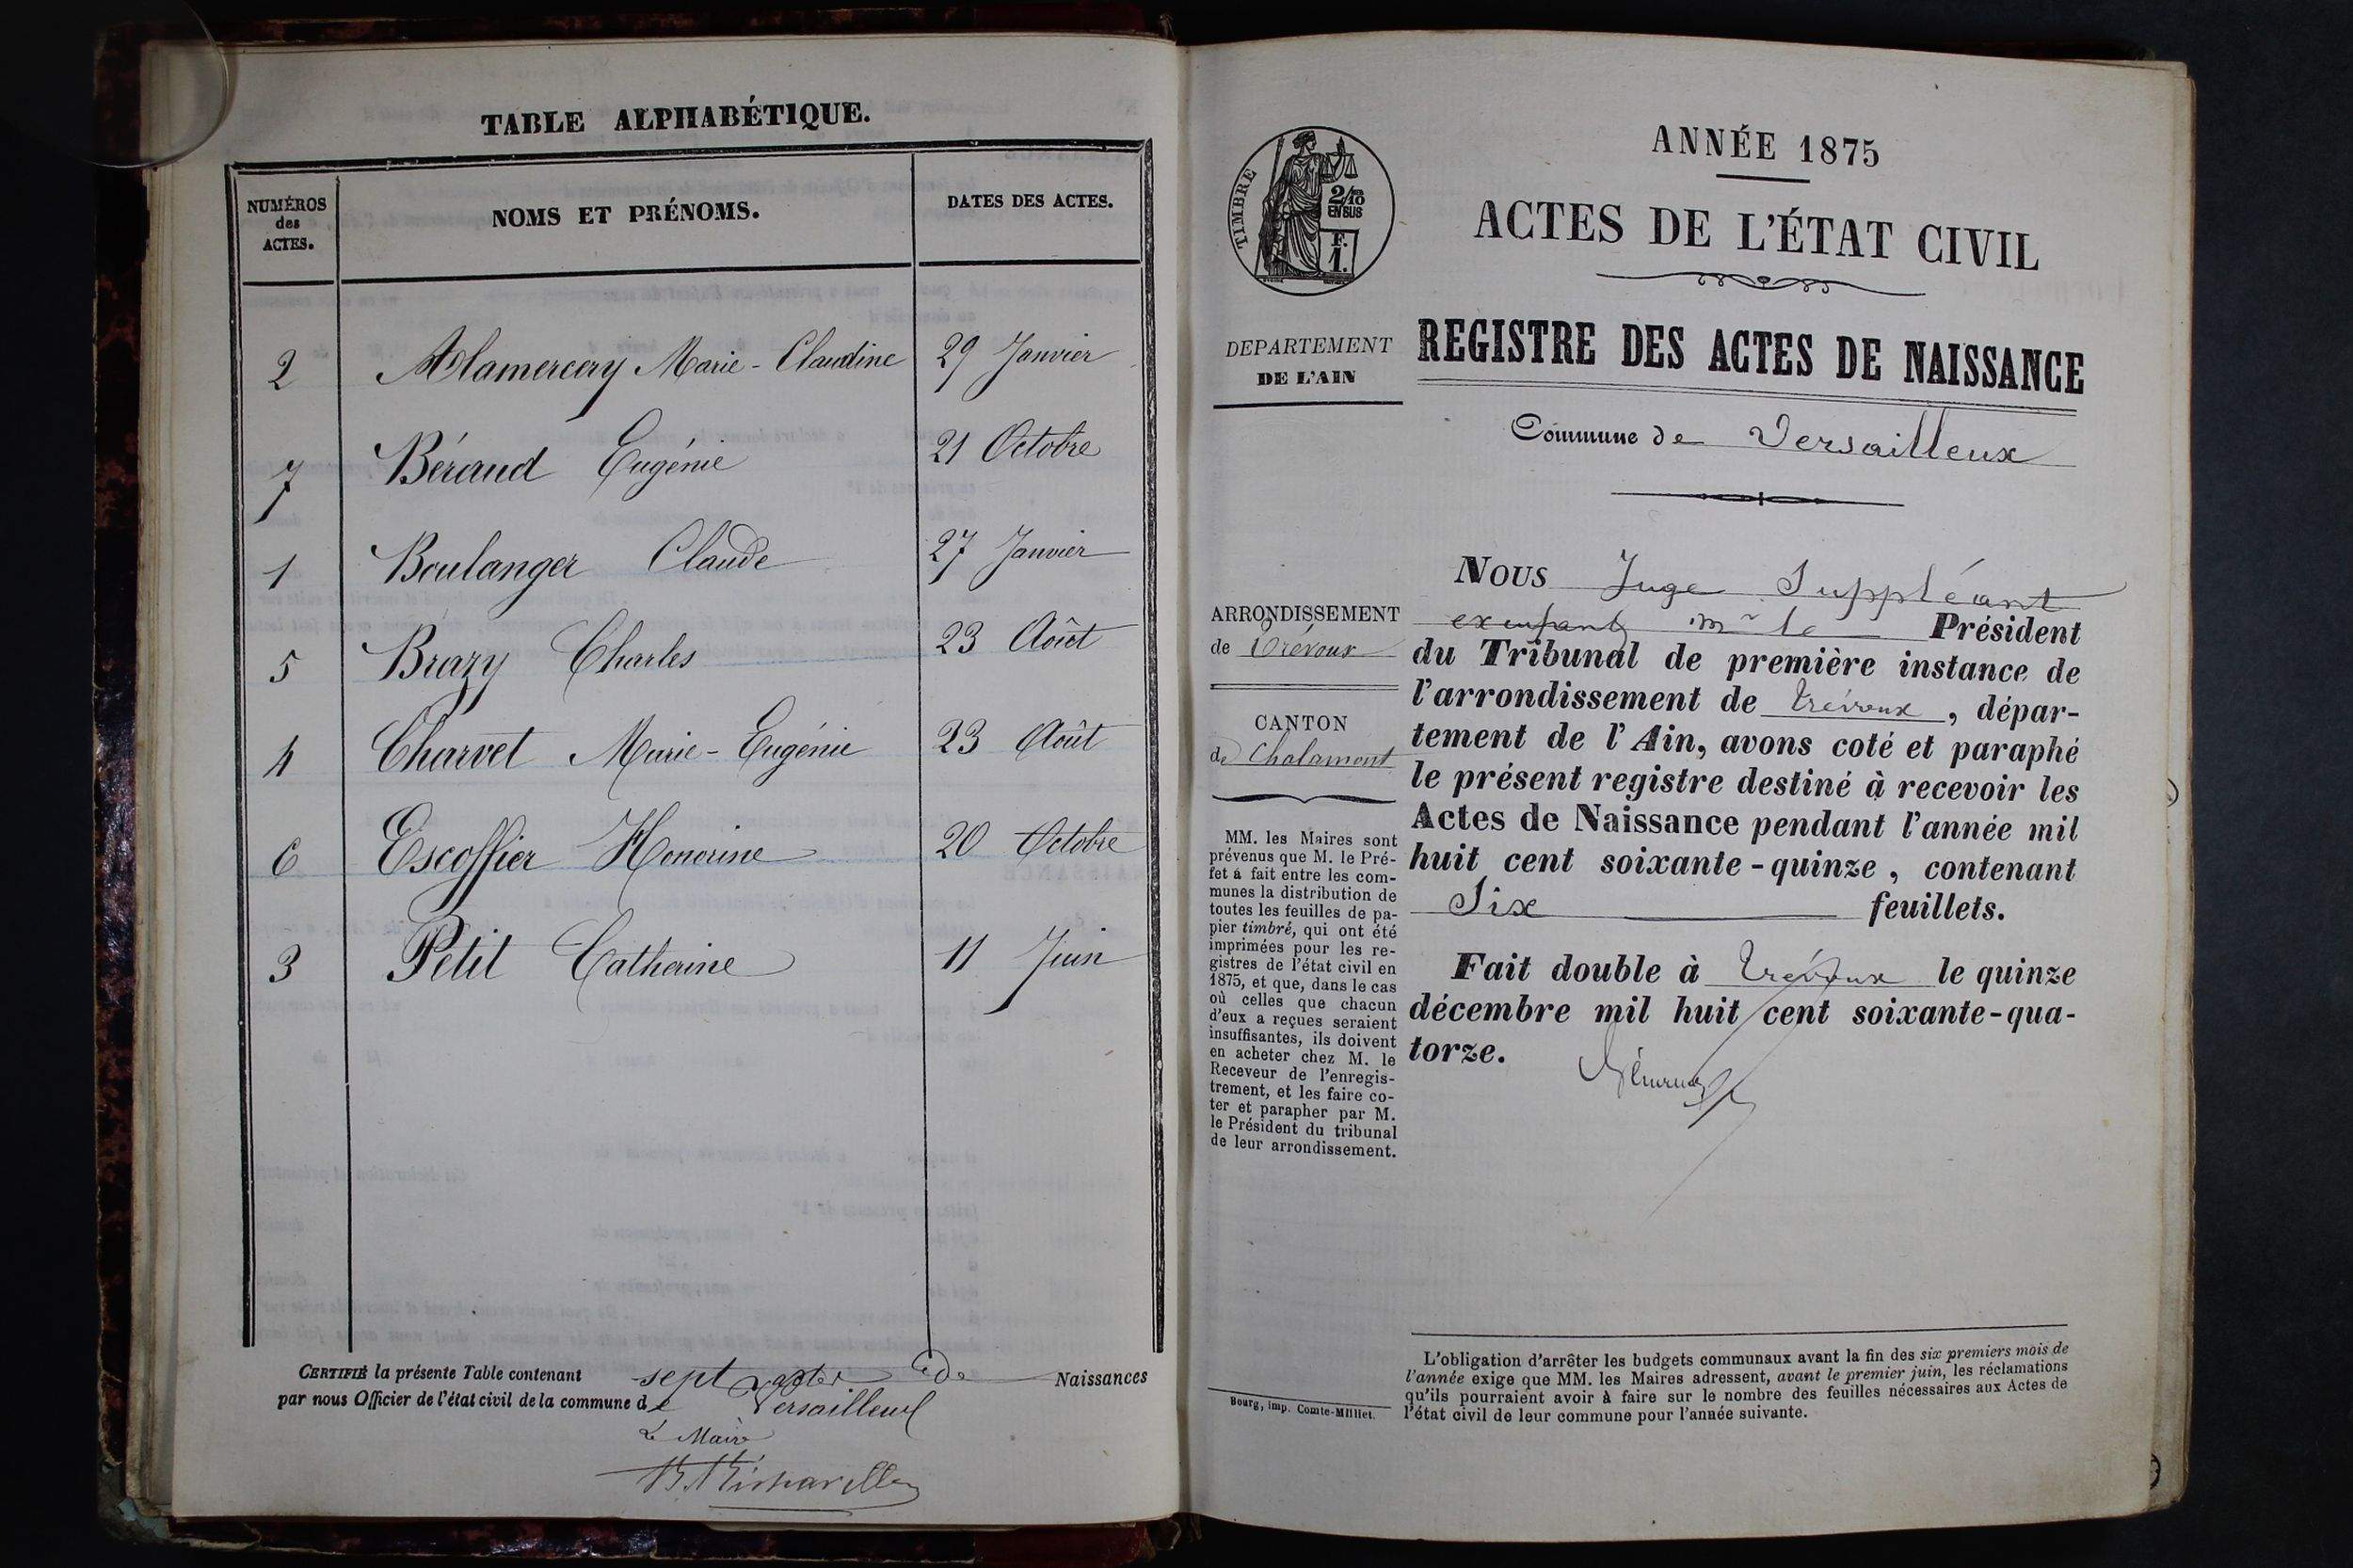 TABLE ALPHABÉTIQUE.
NUMÉROS
des
ACTES.
NOMS ET PRÉNOMS.
DATES DES ACTES.
2 Alamercery Marie-Claudine 29 Janvier
7 Béraud Eugénie 21 Octobre
1 Boulanger Claude 27 Janvier
5 Brazy Charles 23 Août
4 Charvet Marie-Eugénie 23 Août
6 Escoffier Honorine 20 Octobre
3 Petit Catherine 11 Juin
CERTIFIÉ la présente Table contenant sept actes de Naissances
par nous Officier de l'état civil de la commune de Versailleux
Le Maire
TIMBRE
2/10
EN SUS
F.
1.
DEPARTEMENT
DE L'AIN
ARRONDISSEMENT
de Trévoux
CANTON
de Chalamont
MM. les Maires sont
prévenus que M. le Pré-
fet a fait entre les com-
munes la distribution de
toutes les feuilles de pa-
pier timbré, qui ont été
imprimées pour les re-
gistres de l'état civil en
1875, et que, dans le cas
où celles que chacun
d'eux a reçues seraient
insuffisantes, ils doivent
en acheter chez M. le
Receveur de l'enregis-
trement, et les faire co-
ter et parapher par M.
le Président du tribunal
de leur arrondissement.
Bourg, imp. Comte-Milliet.
ANNÉE 1875
ACTES DE L'ÉTAT CIVIL
REGISTRE DES ACTES DE NAISSANCE
Commune de Versailleux
Nous Juge Suppléant
mr le Président
du Tribunal de première instance de
l'arrondissement de trévoux, dépar-
tement de l'Ain, avons coté et paraphé
le présent registre destiné à recevoir les
Actes de Naissance pendant l'année mil
huit cent soixante-quinze, contenant
Six feuillets.
Fait double à trévoux le quinze
décembre mil huit cent soixante-qua-
torze.
L'obligation d'arrêter les budgets communaux avant la fin des six premiers mois de
l'année exige que MM. les Maires adressent, avant le premier juin, les réclamations
qu'ils pourraient avoir à faire sur le nombre des feuilles nécessaires aux Actes de
l'état civil de leur commune pour l'année suivante.